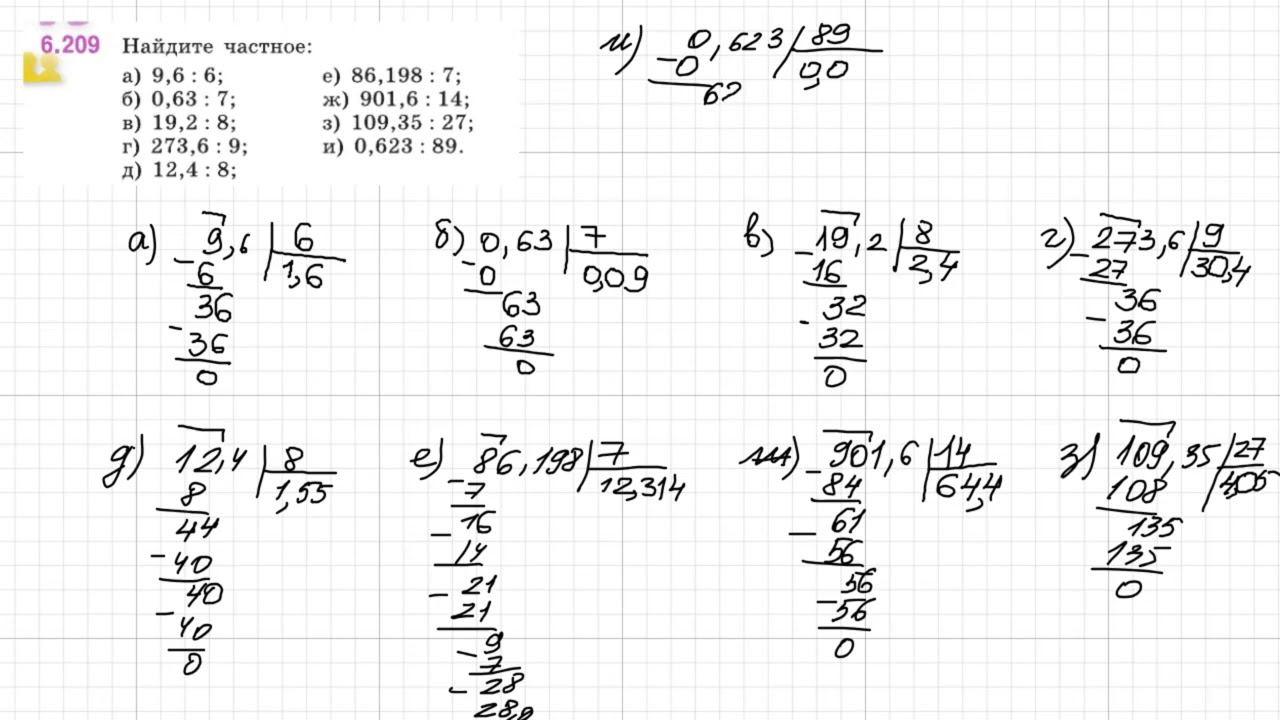 6.209 Найдите частное:
а) 9,6 : 6;
б) 0,63 : 7;
в) 19,2 : 8;
г) 273,6 : 9;
д) 12,4 : 8;
е) 86,198 : 7;
ж) 901,6 : 14;
з) 109,35 : 27;
и) 0,623 : 89.
и) 0,623 89
-0 0,0
62
а) 9,6 6
-6 1,6
36
-36
0
б) 0,63 7
-0 0,09
63
63
0
в) -19,2 8
16 2,4
32
-32
0
г) -273,6 9
27 30,4
36
-36
0
д) 12,4 8
8 1,55
44
-40
40
-40
0
е) -86,198 7
7 12,314
-16
14
-21
21
-9
7
-28
28
ж) -901,6 14
84 64,4
-61
56
56
-56
0
з) 109,35 27
108 4,05
135
135
0